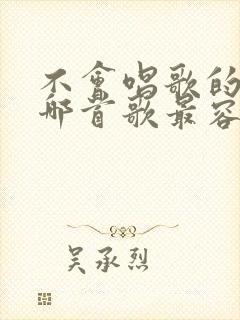 不会唱歌的
哪首歌最容
吴承烈